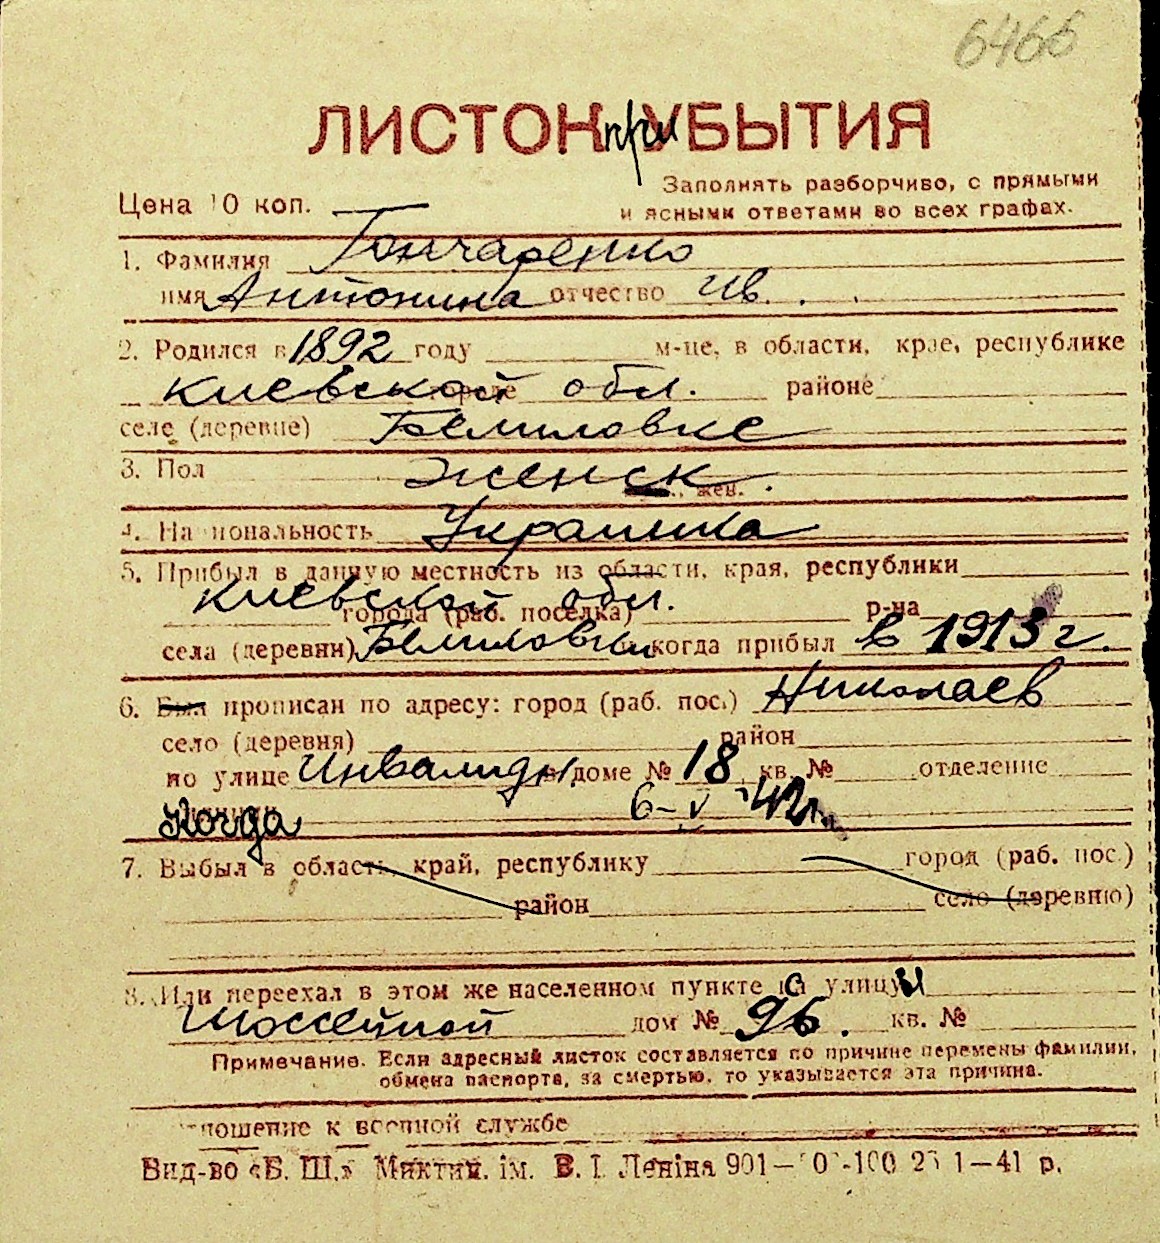 6466
ЛИСТОК при УБЫТИЯ
Цена 10 коп.
Заполнять разборчиво, с прямыми
и ясными ответами во всех графах.
1. Фамилия Гончаренко
имя Антонина отчество Ив.
2. Родился в 1892 году м-це, в области, крае, республике
Киевской обл. районе
селе (деревне) Бемиловке
3. Пол женск. жен.
4. Национальность Украинка
5. Прибыл в данную местность из области, края, республики
Киевской обл.
города (раб. поселка) р-на
села (деревни) Бемиловки когда прибыл в 1913 г.
6. Был прописан по адресу: город (раб. пос.) Николаев
село (деревня) район
по улице Инвалидн. в доме № 18 кв. № отделение
Когда 6-V-42 г.
7. Выбыл в область, край, республику город (раб. пос.)
район село (деревню)
8. Или переехал в этом же населенном пункте с улицы
Шоссейной дом № 96. кв. №
Примечание. Если адресный листок составляется по причине перемены фамилии,
обмена паспорта, за смертью, то указывается эта причина.
отношение к военной службе
Вид-во «Б. Ш.» Микти. ім. В. І. Леніна 901— 0 -100 25 1—41 р.